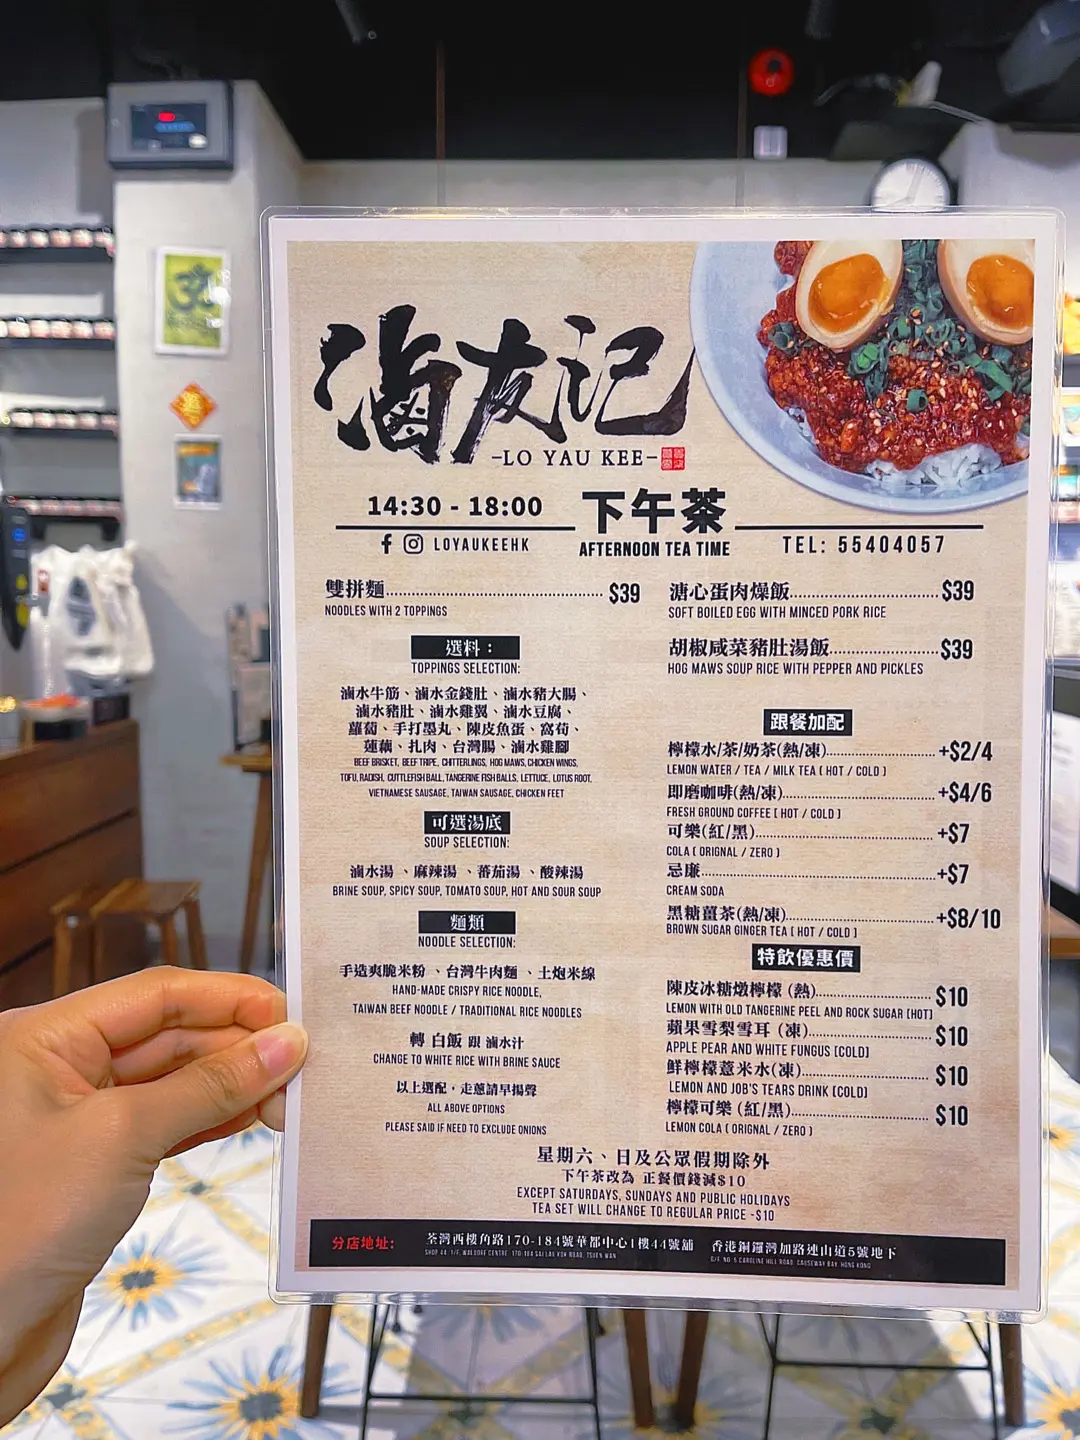 滷友记
-LO YAU KEE-
14:30 - 18:00
下午茶
LOYAUKEEHK
AFTERNOON TEA TIME
TEL: 55404057
雙拼麵 $39
NOODLES WITH 2 TOPPINGS
選料：
TOPPINGS SELECTION:
滷水牛筋、滷水金錢肚、滷水豬大腸、
滷水豬肚、滷水雞翼、滷水豆腐、
蘿蔔、手打墨丸、陳皮魚蛋、窩苟、
蓮藕、扎肉、台灣腸、滷水雞腳
BEEF BRISKET, BEEF TRIPE, CHITTERLINGS, HOG MAWS, CHICKEN WINGS,
TOFU, RADISH, CUTTLEFISH BALL, TANGERINE FISH BALLS, LETTUCE, LOTUS ROOT,
VIETNAMESE SAUSAGE, TAIWAN SAUSAGE, CHICKEN FEET
可選湯底
SOUP SELECTION:
滷水湯 、麻辣湯 、蕃茄湯 、酸辣湯
BRINE SOUP, SPICY SOUP, TOMATO SOUP, HOT AND SOUR SOUP
麵類
NOODLE SELECTION:
手造爽脆米粉 、台灣牛肉麵 、土炮米線
HAND-MADE CRISPY RICE NOODLE,
TAIWAN BEEF NOODLE / TRADITIONAL RICE NOODLES
轉 白飯 跟 滷水汁
CHANGE TO WHITE RICE WITH BRINE SAUCE
以上選配，走蔥請早揚聲
ALL ABOVE OPTIONS
PLEASE SAID IF NEED TO EXCLUDE ONIONS
溏心蛋肉燥飯 $39
SOFT BOILED EGG WITH MINCED PORK RICE
胡椒咸菜豬肚湯飯 $39
HOG MAWS SOUP RICE WITH PEPPER AND PICKLES
跟餐加配
檸檬水/茶/奶茶(熱/凍) +$2/4
LEMON WATER / TEA / MILK TEA ( HOT / COLD )
即磨咖啡(熱/凍) +$4/6
FRESH GROUND COFFEE ( HOT / COLD )
可樂(紅/黑) +$7
COLA ( ORIGNAL / ZERO )
忌廉 +$7
CREAM SODA
黑糖薑茶(熱/凍) +$8/10
BROWN SUGAR GINGER TEA ( HOT / COLD )
特飲優惠價
陳皮冰糖燉檸檬 (熱) $10
LEMON WITH OLD TANGERINE PEEL AND ROCK SUGAR (HOT)
蘋果雪梨雪耳 (凍) $10
APPLE PEAR AND WHITE FUNGUS (COLD)
鮮檸檬薏米水(凍) $10
LEMON AND JOB'S TEARS DRINK (COLD)
檸檬可樂 (紅/黑) $10
LEMON COLA ( ORIGNAL / ZERO )
星期六、日及公眾假期除外
下午茶改為 正餐價錢減$10
EXCEPT SATURDAYS, SUNDAYS AND PUBLIC HOLIDAYS
TEA SET WILL CHANGE TO REGULAR PRICE -$10
分店地址:
荃灣西樓角路170-184號華都中心1樓44號舖
SHOP 44, 1/F, WALDORF CENTRE, 170-184 SAI LAU KOK ROAD, TSUEN WAN
香港銅鑼灣加路連山道5號地下
G/F, NO. 5 CAROLINE HILL ROAD, CAUSEWAY BAY, HONG KONG